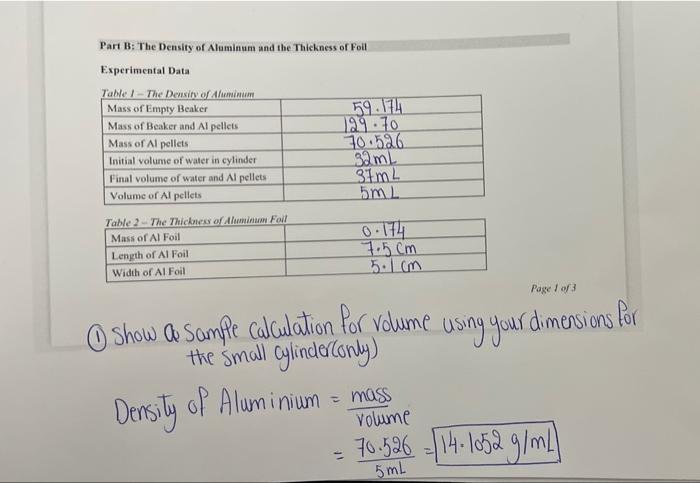 Part B: The Density of Aluminum and the Thickness of Foil
Experimental Data
Table 1 – The Density of Aluminum
Mass of Empty Beaker 59.174
Mass of Beaker and Al pellets 129.70
Mass of Al pellets 70.526
Initial volume of water in cylinder 32mL
Final volume of water and Al pellets 37mL
Volume of Al pellets 5mL
Table 2 – The Thickness of Aluminum Foil
Mass of Al Foil 0.174
Length of Al Foil 7.5 cm
Width of Al Foil 5.1 cm
Page 1 of 3
① Show a sample calculation for volume using your dimensions for
the small cylinder(only)
Density of Aluminium = mass
volume
= 70.526 = 14.1052 g/mL
5mL